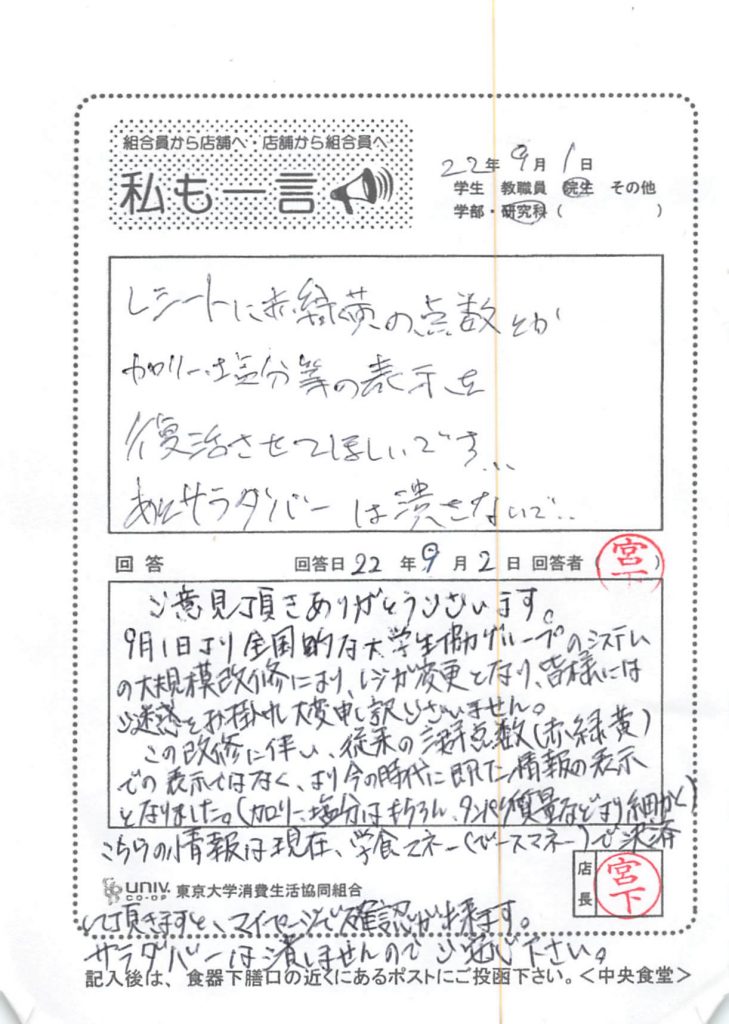 組合員から店舗へ・店舗から組合員へ
私も一言
22年9月1日
学生 教職員 院生 その他
学部・研究科( )
レシートに赤緑黄の点数とか
カロリー・塩分等の表示を
復活させてほしいです...
あとサラダバーは潰さないで..
回答 回答日22年9月2日 回答者(宮下)
ご意見頂きありがとうございます。
9月1日より全国的な大学生協グループのシステム
の大規模改修により、レジが変更となり、皆様には
ご迷惑をお掛けし大変申し訳ございません。
この改修に伴い、従来の3群点数(赤緑黄)
での表示ではなく、より今の時代に即した情報の表示
となりました。(カロリー、塩分はもちろん、タンパク質量などより細かく)
こちらの情報は現在、学食マネー(ベースマネー)で決済
店長 宮下
UNIV. CO-OP 東京大学消費生活協同組合
して頂きますと、マイページで確認が出来ます。
サラダバーは潰しませんのでご安心下さい。
記入後は、食器下膳口の近くにあるポストにご投函下さい。<中央食堂>